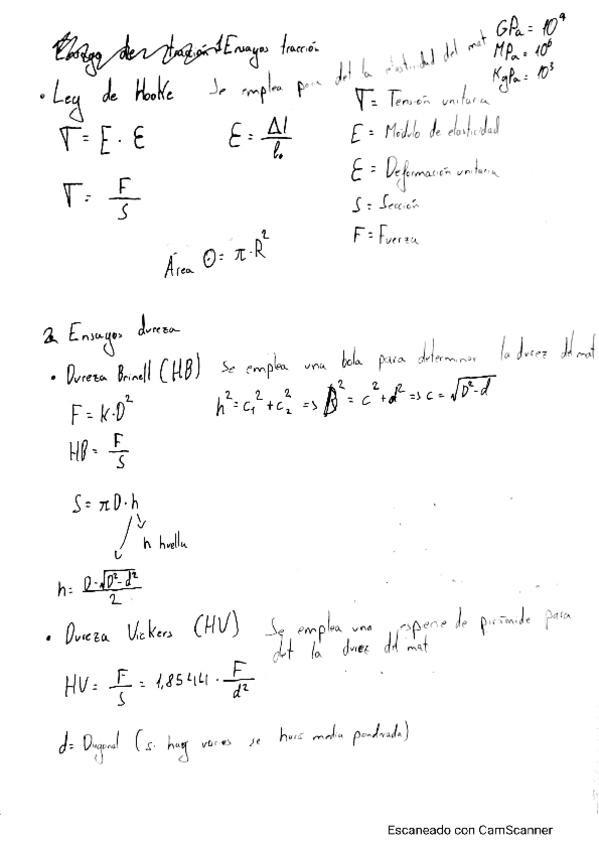 1 Ensayos tracción
GPa = 10⁹
MPa = 10⁶
KgPa = 10³
• Ley de Hooke Se emplea para det la elasticidad del mat
T = E · ε ε = Δl / l₀
T = F / S
T = Tensión unitaria
E = Módulo de elasticidad
ε = Deformación unitaria
S = Sección
F = Fuerza
Área O = π · R²
2 Ensayos dureza
• Dureza Brinell (HB) Se emplea una bola para determinar la durez del mat
F = K · D² h² = c₁² + c₂² => D² = c² + d² => c = √D² - d
HB = F / S
S = π D · h
h huella
h = D - √D² - d² / 2
• Dureza Vickers (HV) Se emplea una especie de pirámide para
det la durez del mat
HV = F / S = 1,8544 · F / d²
d = Diagonal (si hay varias se hace media ponderada)
Escaneado con CamScanner